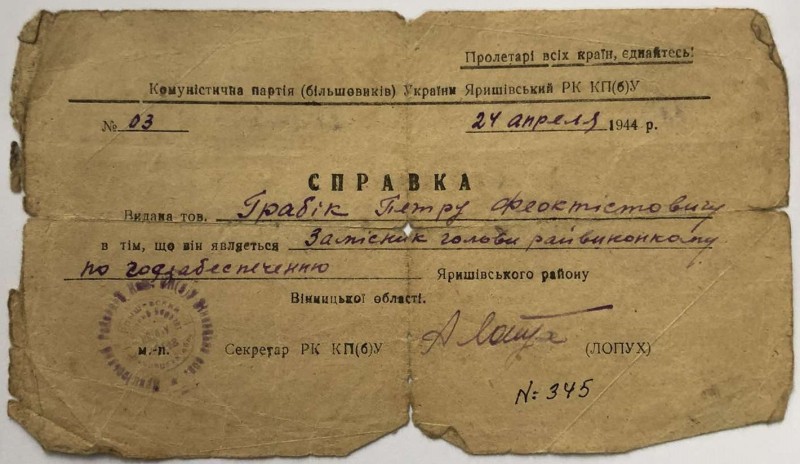 Пролетарі всіх країн, єднайтесь!
Комуністична партія (більшовиків) України Яришівський РК КП(б)У
№ 03 24 апреля 1944 р.
СПРАВКА
Видана тов. Грабік Петру Феоктістовичу
в тім, що він являється Замісник голови райвиконкому
по Яришівського району
Вінницької області.
м.-п. Секретар РК КП(б)У (ЛОПУХ)
№ 345